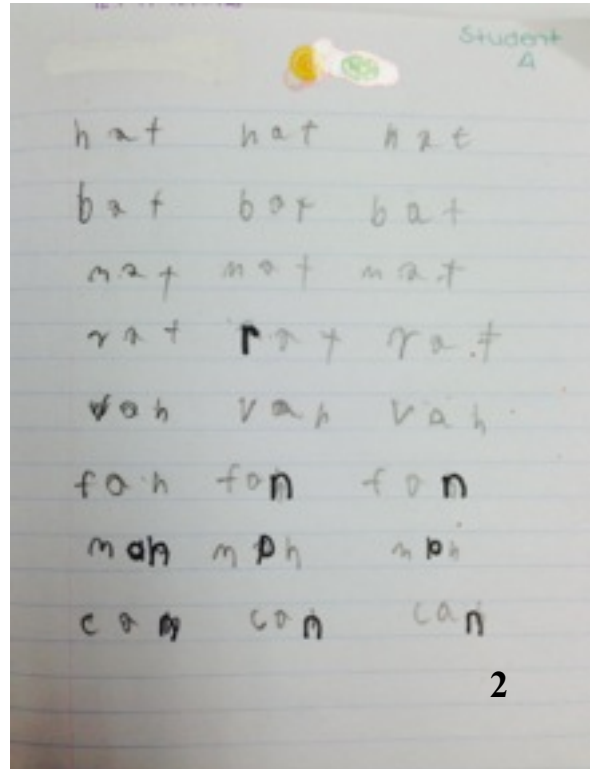 Student
A
hat hat hat
bat bat bat
mat mat mat
rat rat rat
vah vah vah
fah fan fan
man mph mph
can can can
2